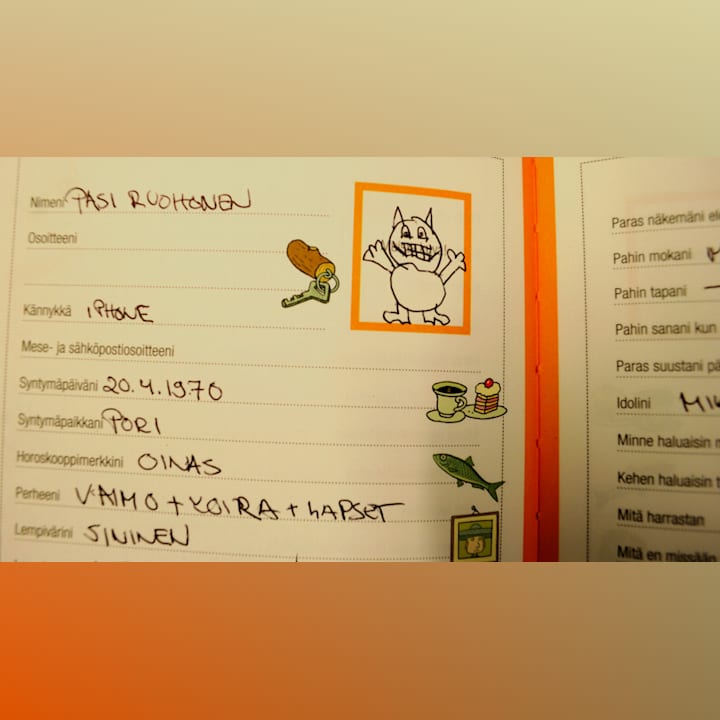 Nimeni PASI RUOHONEN
Osoitteeni
Kännykkä iPHONE
Mese- ja sähköpostiosoitteeni
Syntymäpäiväni 20.4.1970
Syntymäpaikkani PORI
Horoskooppimerkkini OINAS
Perheeni VAIMO + KOIRA + LAPSET
Lempivärini SININEN
Paras näkemäni
Pahin mokani
Pahin tapani
Pahin sanani kun
Paras suustani
Idolini
Minne haluaisin
Kehen haluaisin
Mitä harrastan
Mitä en missään